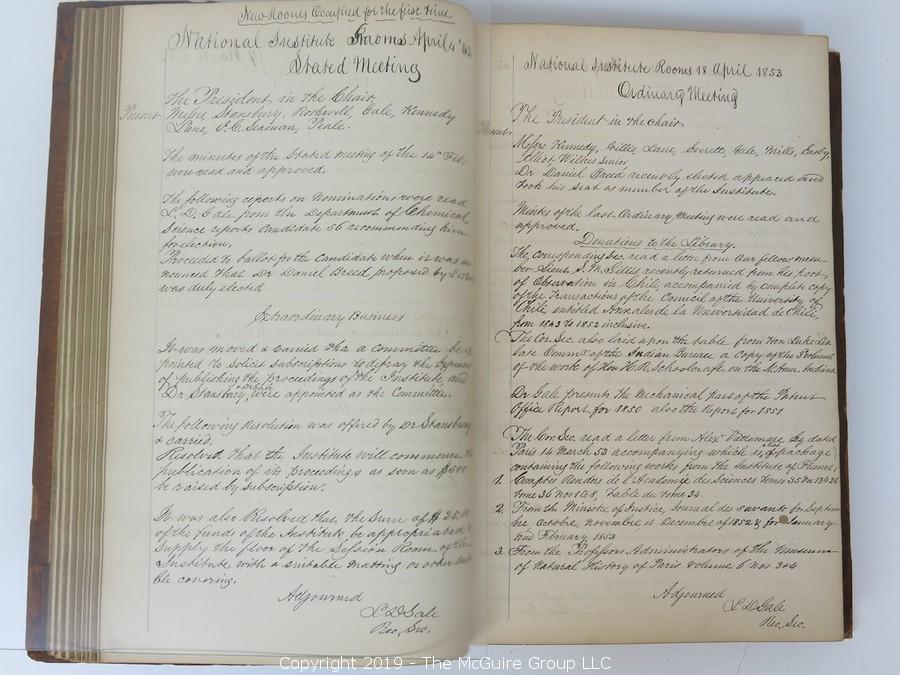 New Rooms Occupied for the first time
National Institute Rooms April 4th
Stated Meeting
Present
The President in the Chair
Messrs Stansbury, Rockwell, Gale, Kennedy
Lane, Seaman, Peale.
The minutes of the Stated meeting of the 14th Feb.
were read and approved.
The following reports on Nominations were read
L. D. Gale from the Department of Chemical
Science reports candidate 56 recommending him
for election.
Proceeded to ballot for the candidate when it was an
nounced that Dr Daniel Breed proposed by
was duly elected
Extraordinary Business
It was moved & carried that a committee be ap
pointed to solicit subscriptions to defray the expenses
of publishing the proceedings of the Institute, and
Dr Stansbury were appointed as the Committee.
The following Resolution was offered by Dr Stansbury
& carried.
Resolved that the Institute will commence the
publication of its proceedings as soon as $500
be raised by subscription.
It was also Resolved that the Sum of $25.00
of the funds of the Institute be appropriated to
supply the floor of the Session Room of the
Institute with a suitable matting or other suita
ble covering.
Adjourned
L D Gale
Rec. Sec.
National Institute Rooms 18 April 1853
Ordinary Meeting
Present
The President in the chair
Messrs Kennedy, Gillis, Lane, Everett, Gale, Mills, Easby,
Eliot, Wilkes Senior
Dr Daniel Breed recently elected appeared and
took his seat as member of the Institute.
Minits of the last Ordinary Meeting were read and
approved.
Donations to the Library.
The Corresponding Sec. read a letter from Our fellow mem-
ber Lieut J. M. Gillis recently returned from his tour
of Observation in Chili, accompanied by complete copy
of the transactions of the Council of the University of
Chili, entitled Annales de la Universidad de Chili,
from 1843 to 1852 inclusive.
The Cor. Sec. also laid upon the table from Hon Luke Lea
late Commr of the Indian Bureau a Copy of the 3 volume
of the work of Hon H. R. Schoolcraft on the N. Amn. Indians.
Dr Gale presents the Mechanical part of the Patent
Office Report for 1850 also the Report for 1851
The Cor. Sec. read a letter from Alexr Vattemare Esq dated
Paris 14 March 53 accompanying which is a package
containing the following works from the Institute of France:
1. Comptes Rendus de l'Academie des Sciences tomes 35 Nos 13 to 26
tome 36 Nos 1 to 8, Table du tome 34
2. From the Ministre of Justice, Journal des Savants for Septem
bre Octobre, Novembre et Decembre of 1852 & for January
and February 1853
3. From the Professor Administrators of the Museum
of Natural History of Paris Volume 6 Nos 3 & 4
Adjourned
L D Gale
Rec. Sec.
Copyright 2019 - The McGuire Group LLC